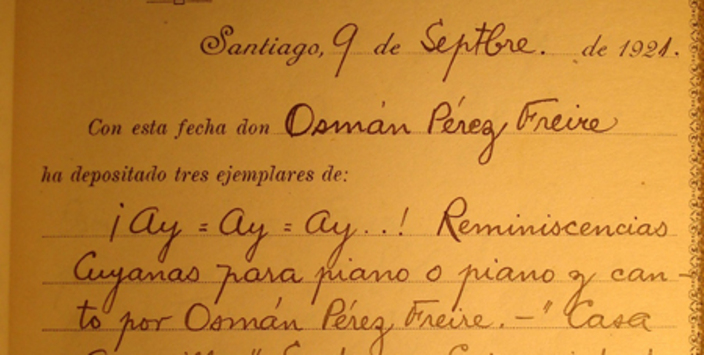 Santiago, 9 de Septbre. de 1921.
Con esta fecha don Osmán Pérez Freire
ha depositado tres ejemplares de:
¡Ay = Ay = Ay..! Reminiscencias
Cuyanas para piano o piano y can-
to por Osmán Pérez Freire. - " Casa